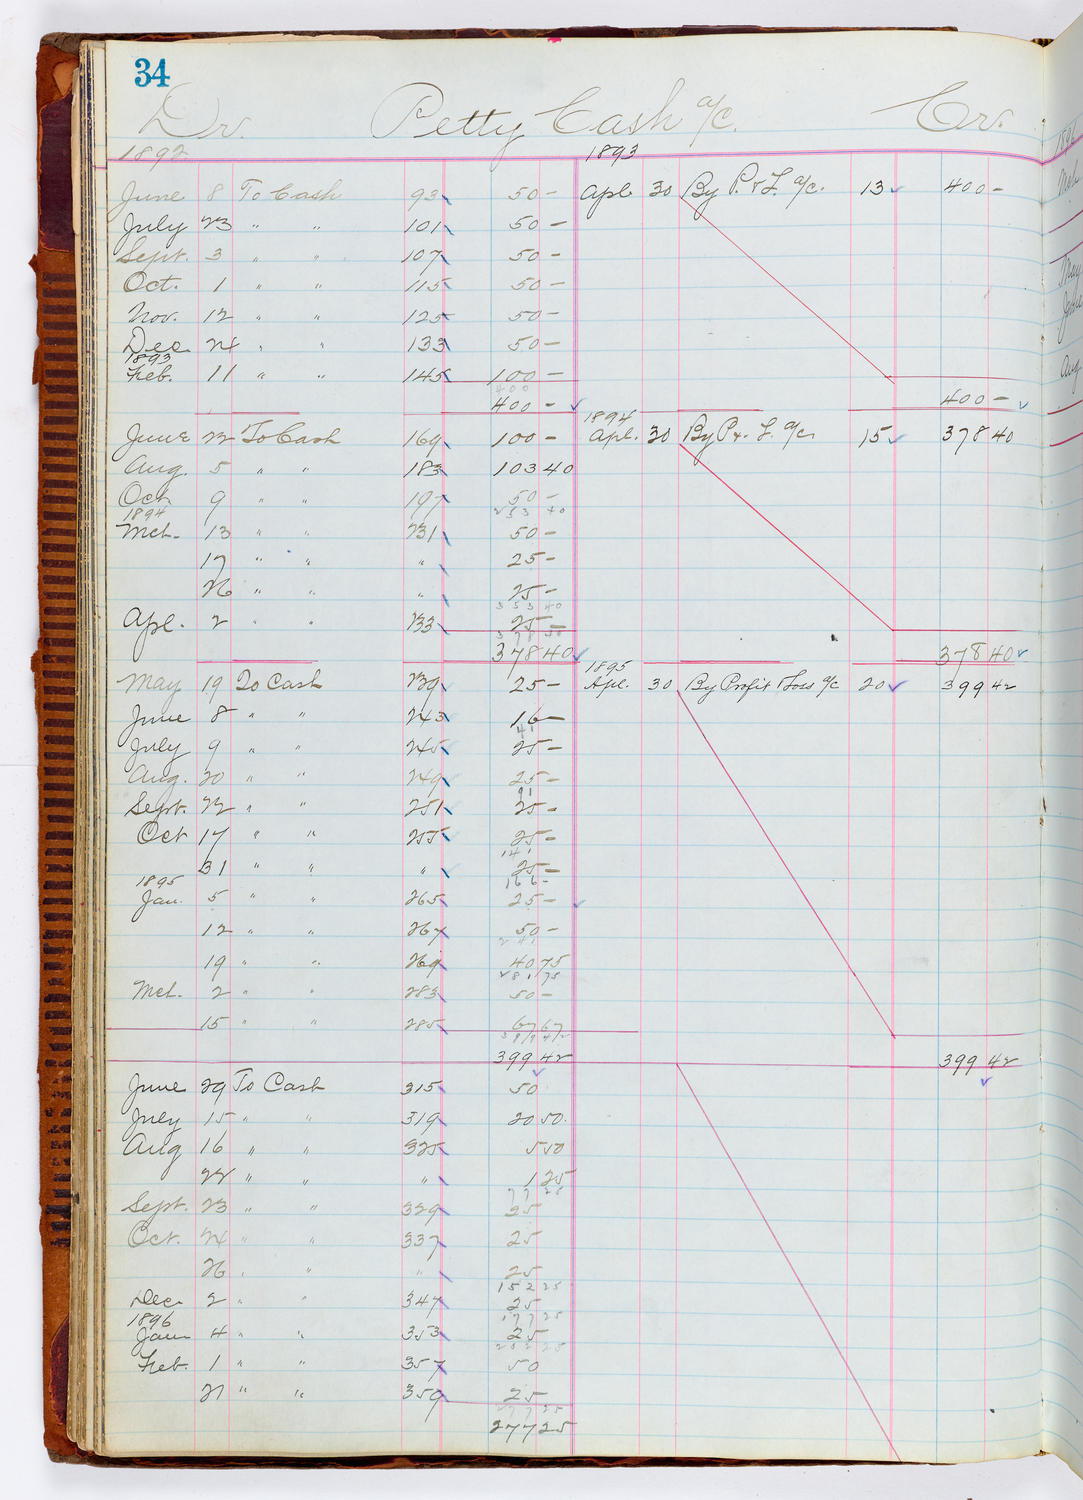 34
Dr. Petty Cash a/c. Cr.
1892 1893
June 8 To Cash 93 50 - Apl 30 By P. & L. a/c. 13 400 -
July 23 " " 101 50 -
Sept. 3 " " 107 50 -
Oct. 1 " " 115 50 -
Nov. 12 " " 125 50 -
Dec 24 " " 133 50 -
1893
Feb. 11 " " 145 100 -
400
400 - 400 -
1894
June 22 To Cash 169 100 - Apl. 30 By P. & L. a/c 15 378 40
Aug. 5 " " 183 103 40
Oct 9 " " 197 50 -
1894 253 40
Mch. 13 " " 231 50 -
17 " " " 25 -
26 " " " 25 -
353 40
Apl. 2 " " 233 25 -
378 40
378 40 378 40
1895
May 19 To Cash 239 25 - Apl. 30 By Profit & Loss a/c 20 399 42
June 8 " " 243 16 -
41
July 9 " " 245 25 -
Aug. 20 " " 249 25 -
91
Sept. 22 " " 251 25 -
Oct 17 " " 255 25 -
141
31 " " " 25 -
1895 166 -
Jan. 5 " " 265 25 -
12 " " 267 50 -
241
19 " " 269 40 75
281 75
Mch. 2 " " 283 50 -
15 " " 285 67 67
399 42
399 42 399 42
June 29 To Cash 315 50
July 15 " " 319 20 50
Aug 16 " " 325 5 50
22 " " " 1 25
77 25
Sept. 23 " " 329 25
Oct. 24 " " 337 25
26 " " " 25
152 25
Dec 2 " " 347 25
1896 177 25
Jan 4 " " 353 25
202 25
Feb. 1 " " 357 50
21 " " 359 25
277 25
277 25